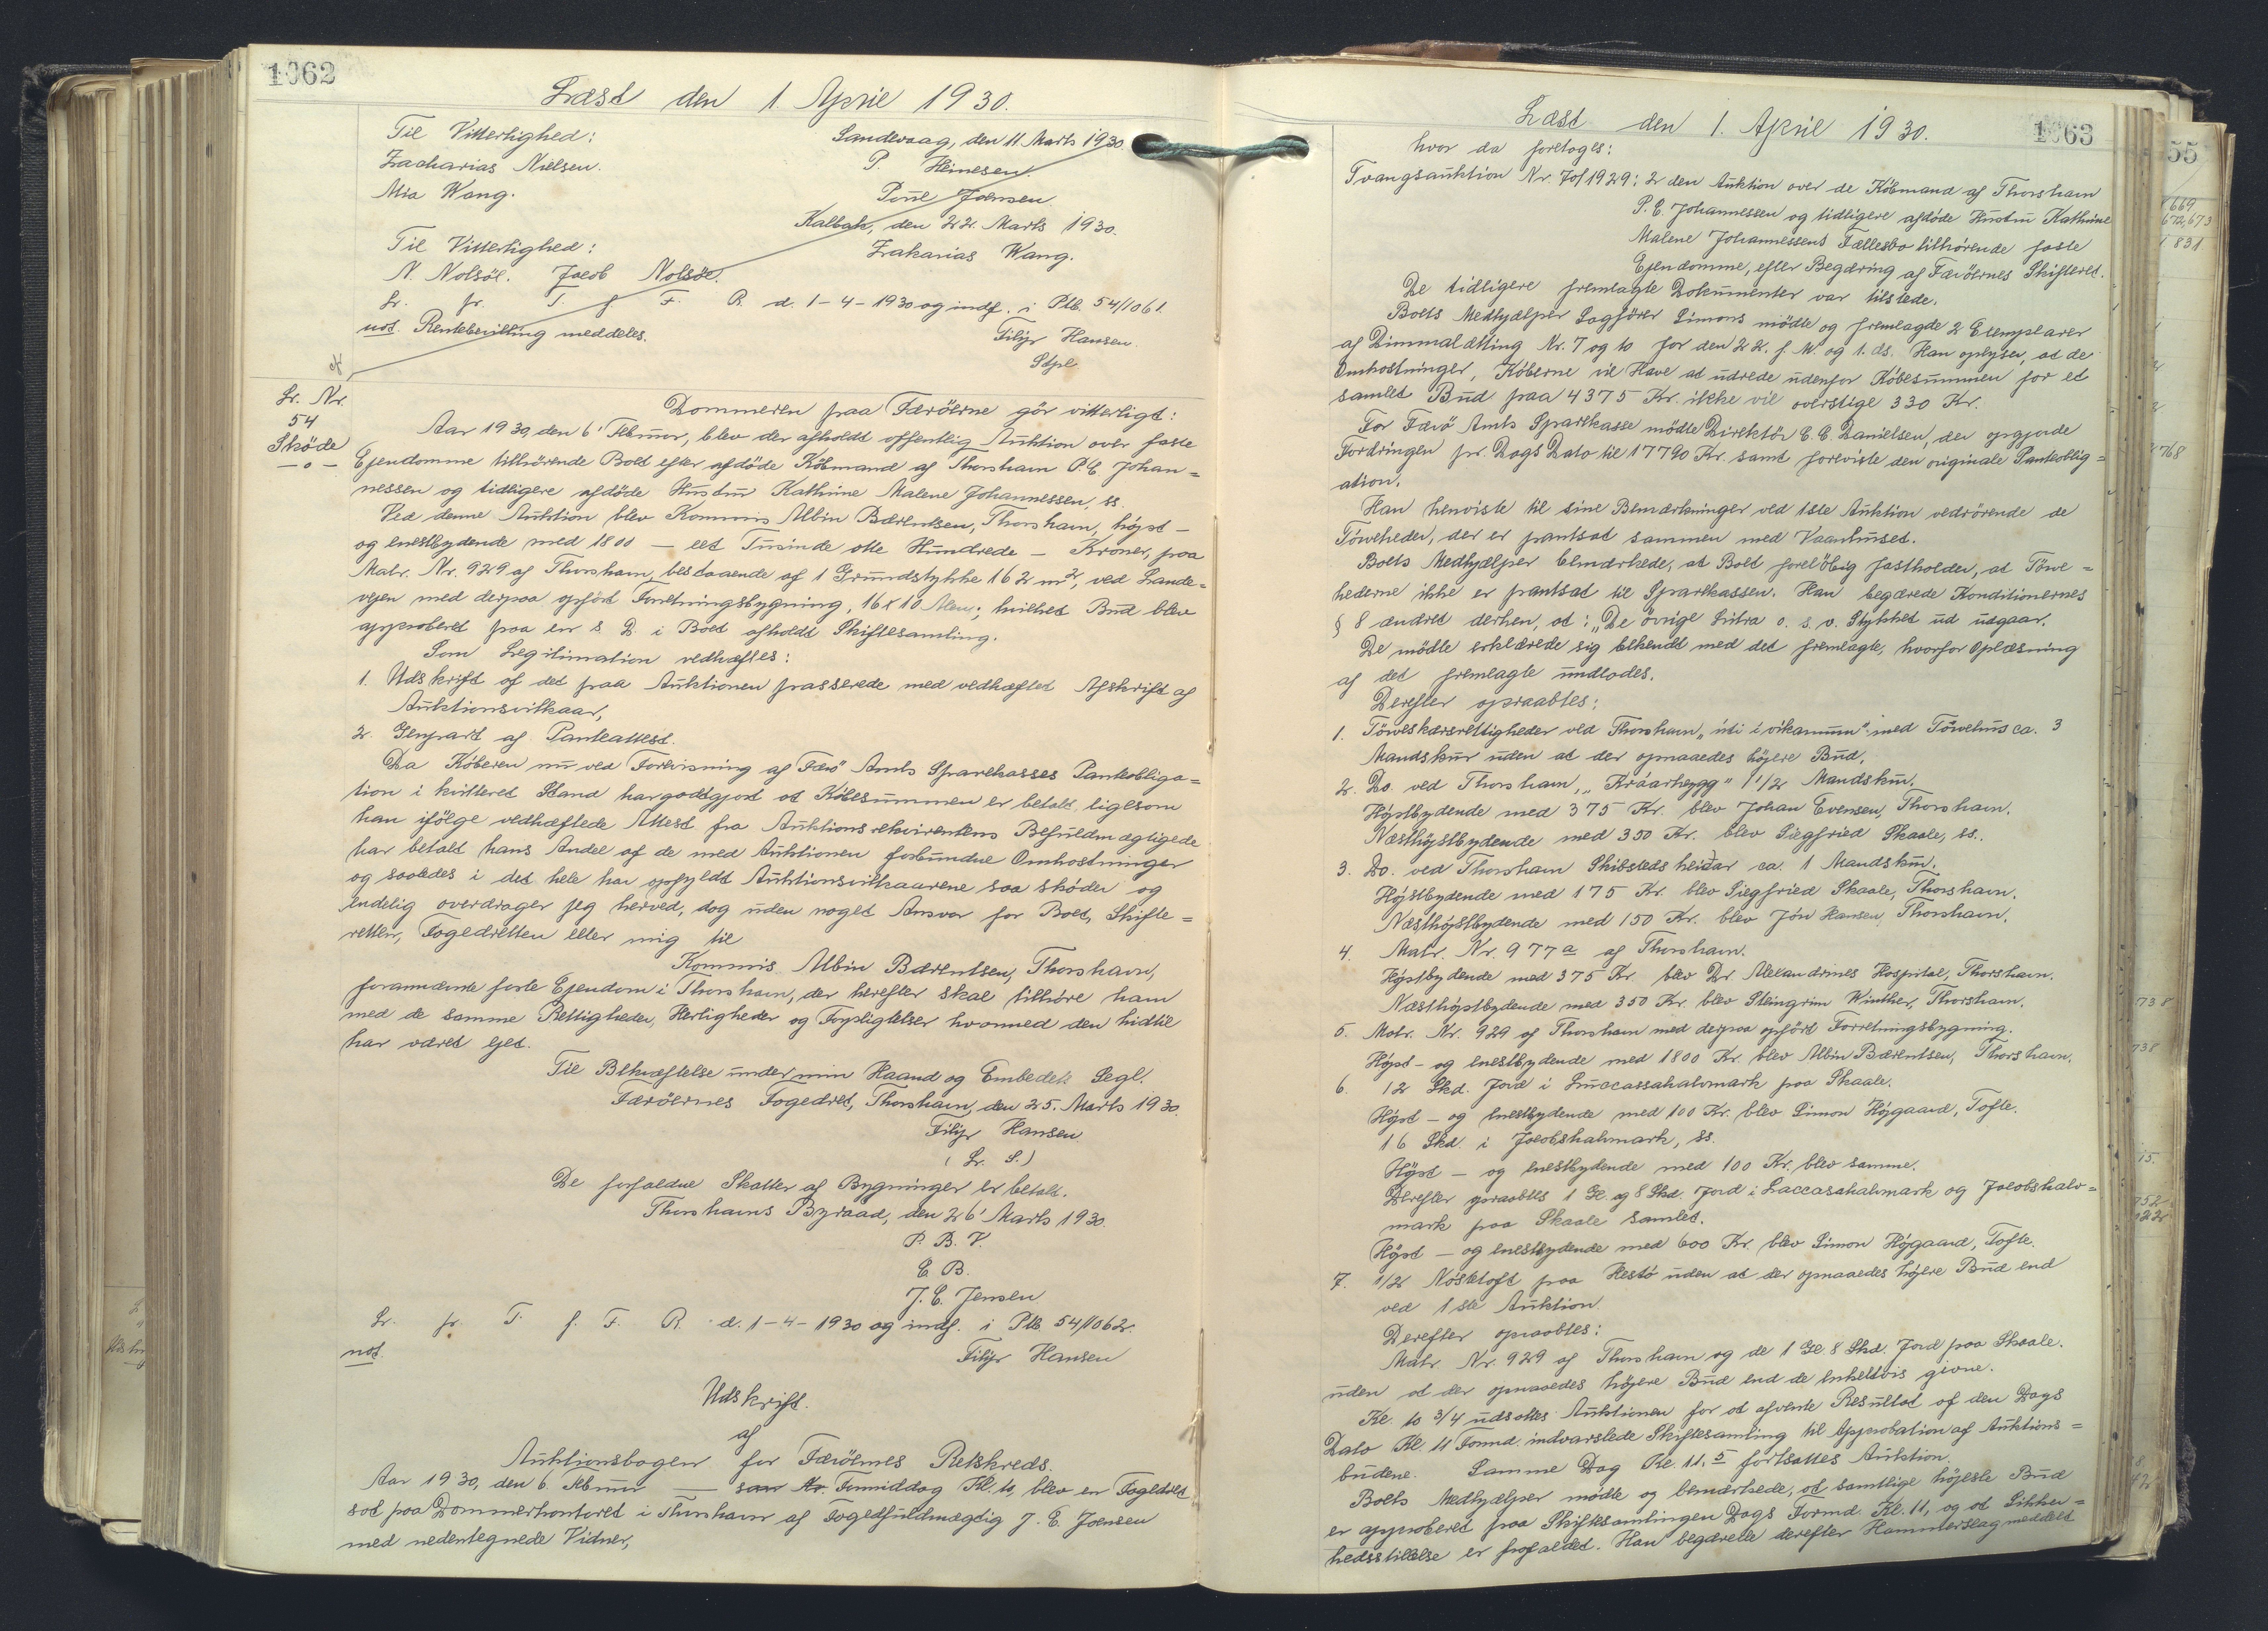 1062
Læst den 1. April 1930.
Til Vitterlighed:
Sandevaag, den 11. Marts 1930.
Zacharias Nielsen.
P. Heinesen.
Mia Wang.
Poul Joensen
Kalbak, den 22. Marts 1930.
Til Vitterlighed:
Zakarias Wang.
N. Nolsöe. Jacob Nolsöe.
Lr. fr. T. f. F. R. d. 1-4-1930 og indf. i Ptb. 54/1061.
not. Rentebevilling meddeles.
Filip Hansen.
Stpl.
Lr. Nr.
54
Sköde
— o —
Dommeren paa Færöerne gör vitterligt:
Aar 1930, den 6' Februar, blev der afholdt offentlig Auktion over faste
Ejendomme tilhörende Boet efter afdöde Köbmand af Thorshavn P. C. Johan=
nessen og tidligere afdöde Hustru Kathrine Malene Johannessen, ss.
Ved denne Auktion blev Kommis Albin Bærentsen, Thorshavn, højst-
og enestbydende med 1800 — eet Tusinde otte Hundrede — Kroner, paa
Matr. Nr. 929 af Thorshavn, bestaaende af 1 Grundstykke 162 m², ved Lande=
vejen med derpaa opfört Forretningsbygning, 16 x 10 Alen; hvilket Bud blev
approberet paa en s. D. i Boet afholdt Skiftesamling.
Som Legitimation vedhæftes:
1. Udskrift af det paa Auktionen passerede med vedhæftet Afskrift af
Auktionsvilkaar,
2. Genpart af Panteattest.
Da Köberen nu ved Forevisning af Færö Amts Sparekasses Panteobliga=
tion i kvitteret Stand har godtgjort at Köbesummen er betalt, ligesom
han ifölge vedhæftede Attest fra Auktionsrekvirentens Befuldmægtigede
har betalt hans Andel af de med Auktionen forbundne Omhostninger
og saaledes i det hele har opfyldt Auktionsvilkaarene saa sköder og
endelig overdrager jeg herved, dog uden noget Ansvar for Boet, Skifte=
retten, Fogedretten eller mig til
Kommis Albin Bærentsen, Thorshavn,
forannævnte faste Ejendom i Thorshavn, der herefter skal tilhöre ham
med de samme Rettigheder, Herligheder og Forpligtelser hvormed den hidtil
har været ejet.
Til Bekræftelse under min Haand og Embedets Segl.
Færöernes Fogedret, Thorshavn, den 25. Marts 1930.
Filip Hansen
(L. S.)
De forfaldne Skatter af Bygninger er betalt.
Thorshavns Byraad, den 26' Marts 1930.
P. B. V.
E. B.
J. C. Jensen
Lr. fr. T. f. F. R. d. 1-4-1930 og indf. i Ptb. 54/1062.
not.
Filip Hansen
Udskrift.
af
Auktionsbogen for Færöernes Retskreds.
Aar 1930, den 6. Februar — Formiddag Kl. 10, blev en Fogedret
sat paa Dommerkontoret i Thorshavn af Fogedfuldmægtig J. E. Joensen
med nedentegnede Vidner,
1063
Læst den 1. April 1930.
hvor da foretoges:
Tvangsauktion Nr. 70/1929: 2 den Auktion over de Köbmand af Thorshavn
P. C. Johannessen og tidligere afdöde Hustru Kathrine
Malene Johannessens Fællesbo tilhörende faste
Ejendomme, efter Begæring af Færöernes Skifteret.
De tidligere fremlagte Dokumenter var tilstede.
Boets Medhjælper Sagförer Simons mödte og fremlagde 2 Exemplarer
af Dimmalætting Nr. 7 og 10 for den 22. f. M. og 1. ds. Han oplyser, at de
Omkostninger, Köberne vil Have at udrede udenfor Köbesummen for et
samlet Bud paa 4375 Kr. ikke vil overstige 330 Kr.
For Færö Amts Sparekasse mödte Direktör C. C. Danielsen, der opgjorde
Fordringen pr. Dags Dato til 17790 Kr. samt foreviste den originale Panteoblig=
ation.
Han henviste til sine Bemærkninger ved 1ste Auktion vedrörende de
Törveheder, der er pantsat sammen med Vaanhuset.
Boets Medhjælper bemærkede, at Boet forelöbig fastholder, at Törve=
hederne ikke er pantsat til Sparekassen. Han begærede Konditionernes
§ 8 ændret derhen, at: "De övrige Litra o. s. v. Stykket ud udgaar.
De mödte erklærede sig bekendt med det fremlagte, hvorfor Oplæsning
af det fremlagte undlodes.
Derefter opraabtes:
1. Törveskærsrettigheder ved Thorshavn med Törvehus ca. 3
Mandskur uden at der opnaaedes höjere Bud.
2. Do. ved Thorshavn, 1 1/2 Mandskur.
Höjstbydende med 375 Kr. blev Johan Evensen, Thorshavn.
Næsthöjstbydende med 350 Kr. blev Siegfried Skaale, ss.
3. Do. ved Thorshavn Skibsteds heidar ca. 1 Mandskur.
Höjstbydende med 175 Kr. blev Siegfried Skaale, Thorshavn.
Næsthöjstbydende med 150 Kr. blev Jón Hansen, Thorshavn.
4. Matr. Nr. 977 a af Thorshavn.
Höjstbydende med 375 Kr. blev Dr. Alexandrines Hospital, Thorshavn.
Næsthöjstbydende med 350 Kr. blev Steingrim Winther, Thorshavn.
5. Matr. Nr. 929 af Thorshavn med derpaa opfört Forretningsbygning.
Höjst- og enestbydende med 1800 Kr. blev Albin Bærentsen, Thorshavn.
6. 12 Skd. Jord i Luccassahalvmark paa Skaale.
Höjst- og enestbydende med 100 Kr. blev Simon Höjgaard, Tofte.
16 Skd. i Jacobshalvmark, ss.
Höjst- og enestbydende med 100 Kr. blev samme.
Derefter opraabtes 1 Gl. og 8 Skd. Jord i Laccasahalvmark og Jacobshalv=
mark paa Skaale samlet.
Höjst- og enestbydende med 600 Kr. blev Simon Höjgaard, Tofte.
7. 1/2 Nóstetoft paa Hestö uden at der opnaaedes höjere Bud end
ved 1ste Auktion.
Derefter opraabtes:
Matr. Nr. 929 af Thorshavn og de 1 Gl. 8 Skd. Jord paa Skaale.
uden at der opnaaedes höjere Bud end de enkeltvis givne.
Kl. 10 3/4 udsattes Auktionen for at afvente Resultat af den Dags
Dato Kl. 11 Formd. indvarslede Skiftesamling til Approbation af Auktions=
budene. Samme Dag Kl. 11.5 fortsattes Auktion.
Boets Medhjælper mödte og bemærkede, at samtlige höjeste Bud
er approberet paa Skiftesamlingen Dags Formd. Kl. 11, og at Sikker=
hedsstillelse er frafaldet. Han begærede derefter Hammerslag meddelt
55
669
672,673
831
768
738
738
15.